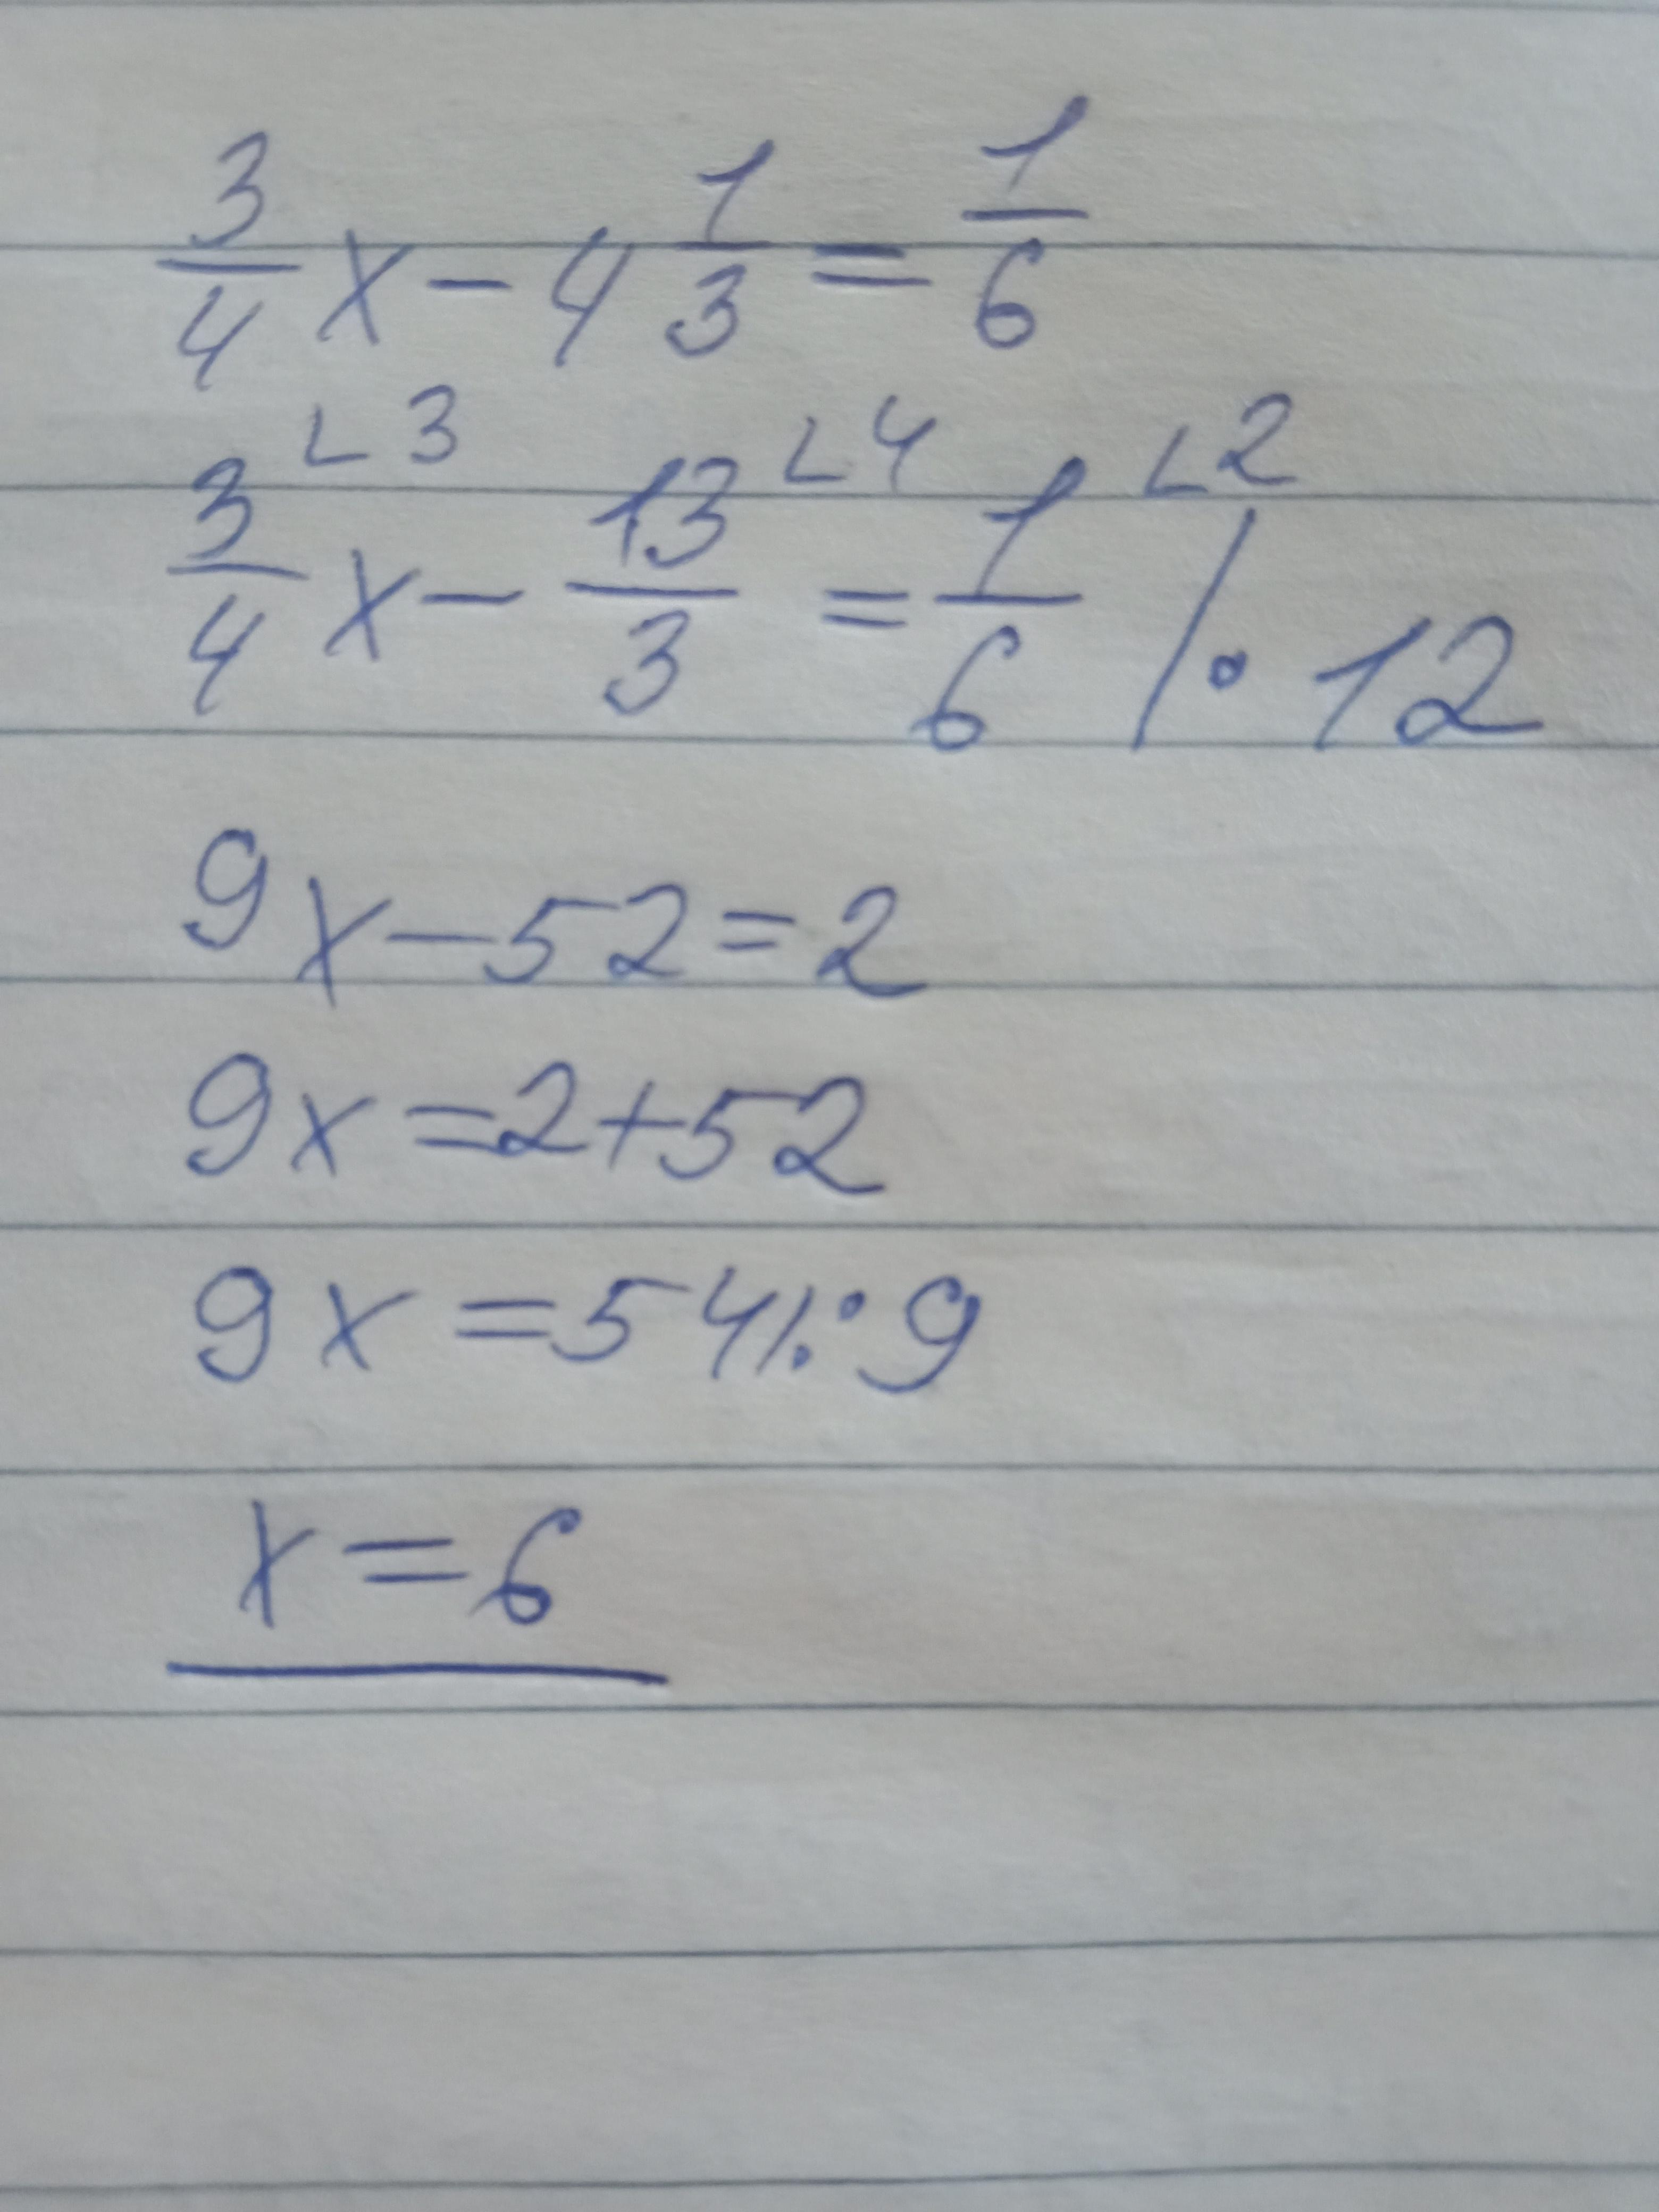 3/4 x - 4 1/3 = 1/6
∟3 ∟4 ∟2
3/4 x - 13/3 = 1/6 / · 12
9x - 52 = 2
9x = 2 + 52
9x = 54 /: 9
x = 6